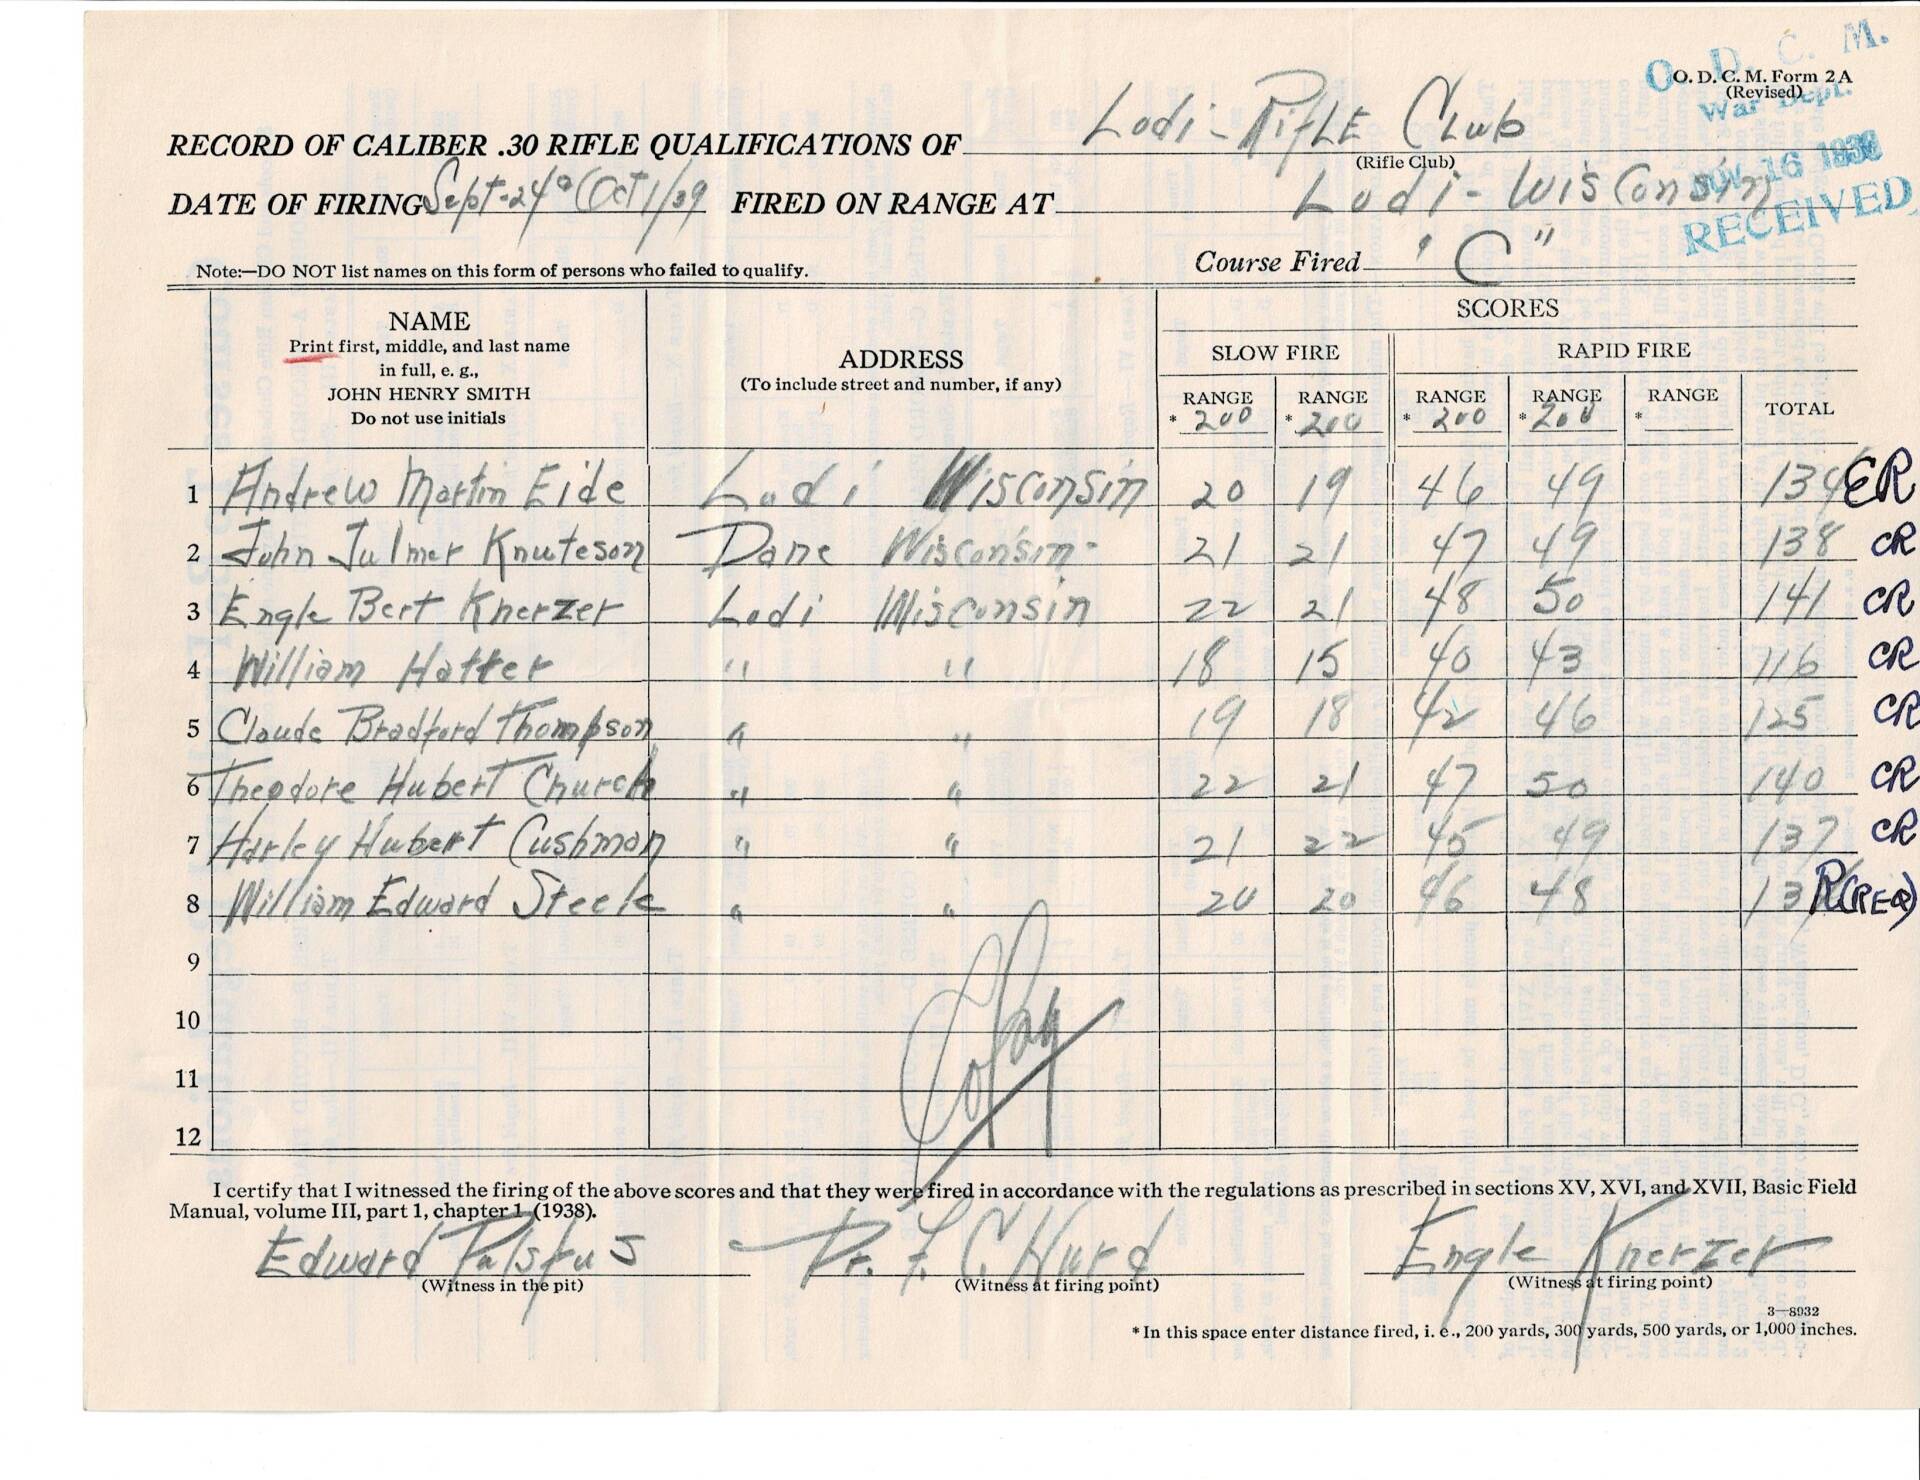 O. D. C. M.
O. D. C. M. Form 2 A
(Revised)
War Dept.
NOV 16 1939
RECEIVED
RECORD OF CALIBER .30 RIFLE QUALIFICATIONS OF Lodi - Rifle Club
(Rifle Club)
DATE OF FIRING Sept-24 Oct 1/39 FIRED ON RANGE AT Lodi - Wisconsin
Note:—DO NOT list names on this form of persons who failed to qualify.
Course Fired "C"
NAME
Print first, middle, and last name
in full, e. g.,
JOHN HENRY SMITH
Do not use initials
ADDRESS
(To include street and number, if any)
SCORES
SLOW FIRE RAPID FIRE
RANGE RANGE RANGE RANGE RANGE TOTAL
* 200 * 200 * 200 * 200 *
1 Andrew Martin Eide Lodi Wisconsin 20 19 46 49 134 ER
2 John Julmer Knuteson Dane Wisconsin - 21 21 47 49 138 CR
3 Engle Bert Knerzer Lodi Wisconsin 22 21 48 50 141 CR
4 William Hatter " " 18 15 40 43 116 CR
5 Claude Bradford Thompson " " 19 18 42 46 125 CR
6 Theodore Hubert Church " " 22 21 47 50 140 CR
7 Harley Hubert Cushman " " 21 22 45 49 137 CR
8 William Edward Steele " " 20 20 46 48 R(REQ)
9
10
11
12
I certify that I witnessed the firing of the above scores and that they were fired in accordance with the regulations as prescribed in sections XV, XVI, and XVII, Basic Field
Manual, volume III, part 1, chapter 1 (1938).
Edward Dr. F. C. Hurd Engle Knerzer
(Witness in the pit) (Witness at firing point) (Witness at firing point)
3—8932
* In this space enter distance fired, i. e., 200 yards, 300 yards, 500 yards, or 1,000 inches.